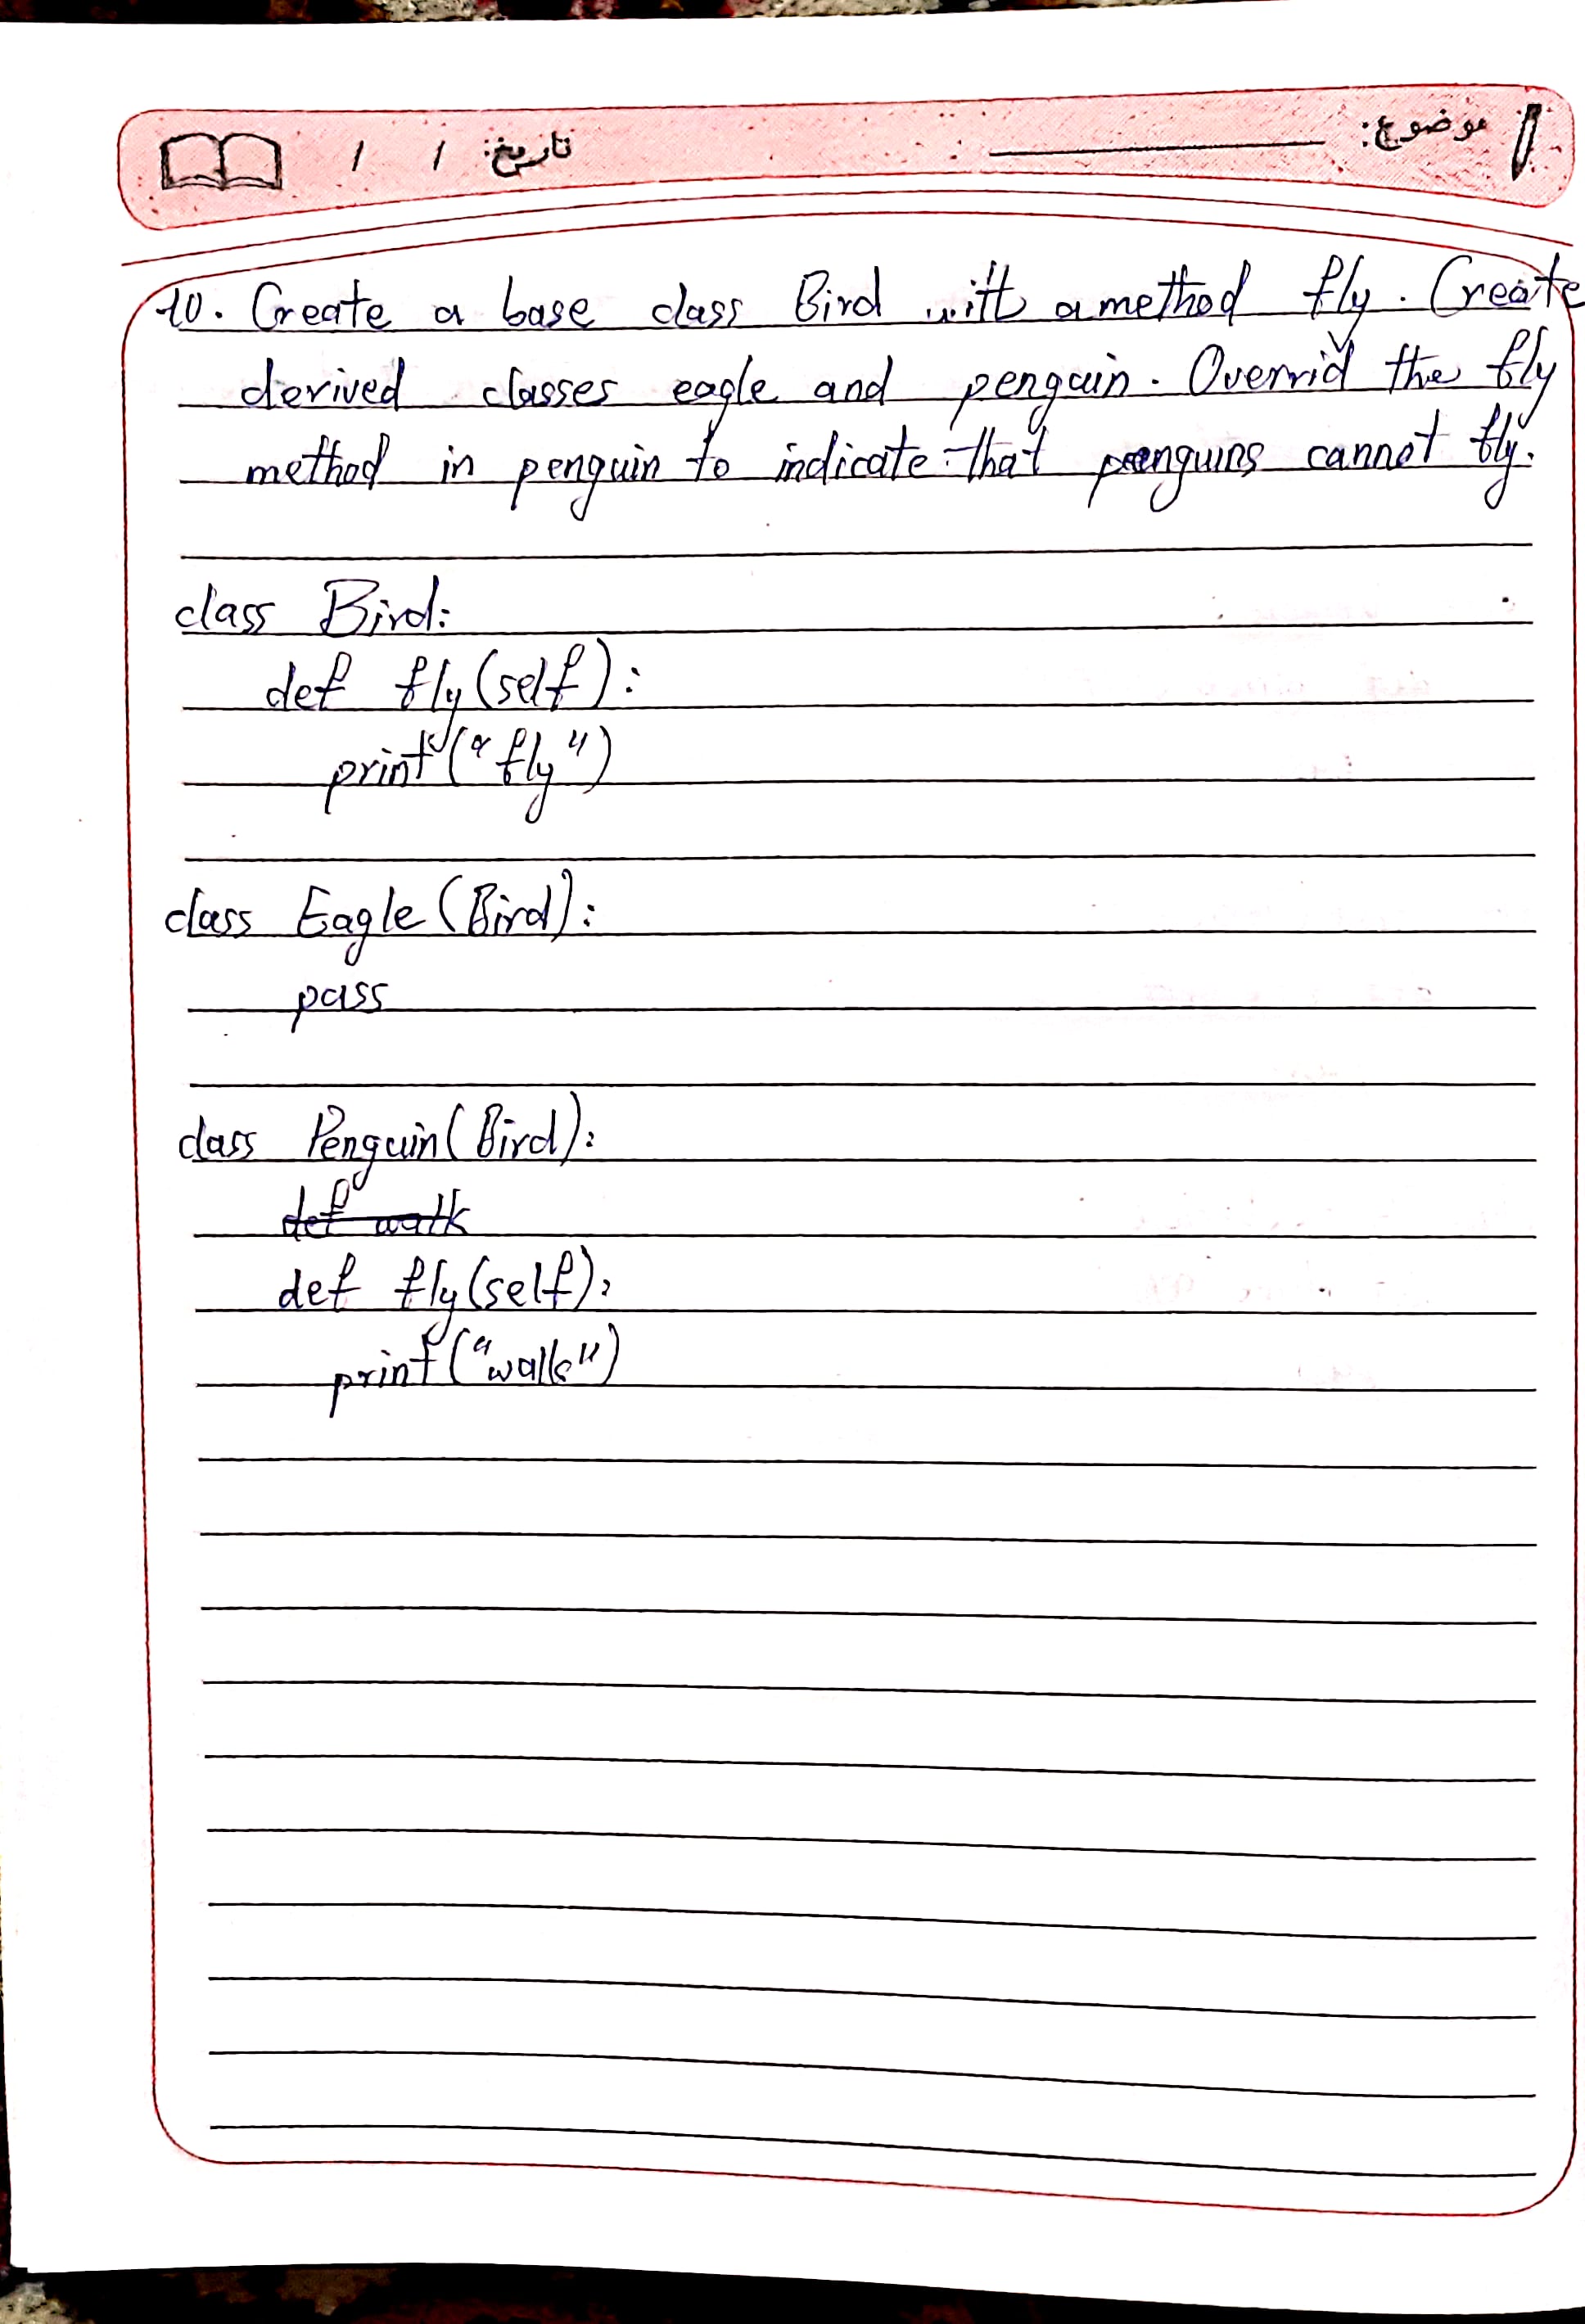 موضوع: تاریخ: / /
10. Create a base class Bird with a method fly. Create
derived classes eagle and penguin. Overrid the fly
method in penguin to indicate that penguins cannot fly.
class Bird:
def fly(self):
print("fly")
class Eagle(Bird):
pass
class Penguin(Bird):
def walk
def fly(self):
print("walk")